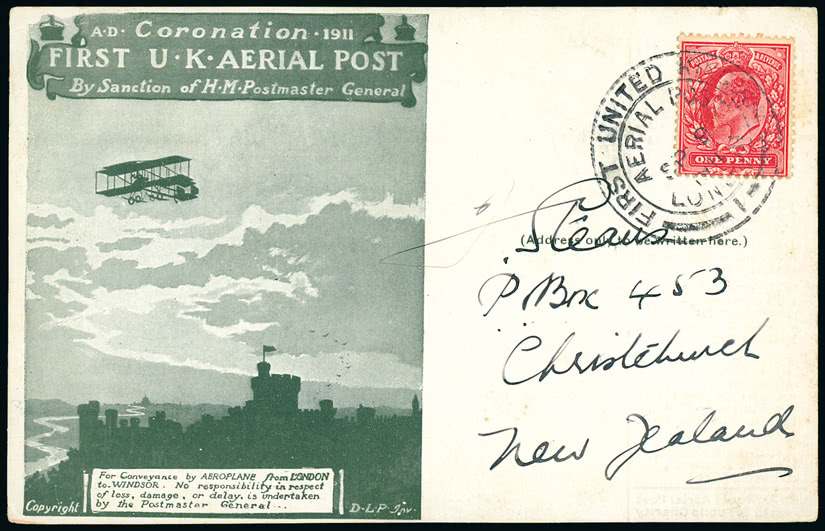 A·D· Coronation · 1911
FIRST U·K·AERIAL POST
By Sanction of H·M·Postmaster General
For Conveyance by AEROPLANE from LONDON
to WINDSOR. No responsibility in respect
of loss, damage, or delay, is undertaken
by the Postmaster General...
Copyright
D·L·P·
POSTAGE
ONE PENNY
FIRST UNITED
AERIAL
(Address only to be written here.)
P Box 453
Christchurch
New Zealand